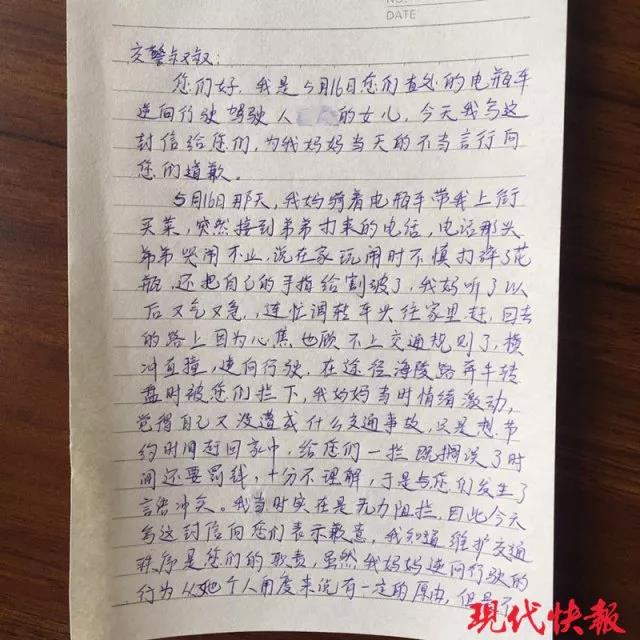 NO.
DATE
交警叔叔：
您们好，我是5月16日您们查处的电瓶车
逆向行驶驾驶人 的女儿，今天我写这
封信给您们，为我妈妈当天的不当言行向
您们道歉。
5月16日那天，我妈骑着电瓶车带我上街
买菜，突然接到弟弟打来的电话，电话那头
弟弟哭闹不止，说在家玩闹时不慎打碎了花
瓶，还把自己的手指给割破了，我妈听了以
后又气又急，连忙调转车头往家里赶，回去
的路上因为心焦也顾不上交通规则了，横
冲直撞，逆向行驶，在途径海陵路奔牛转
盘时被您们拦下，我妈妈当时情绪激动，
觉得自己又没造成什么交通事故，只是想节
约时间赶回家中，给您们一拦既搁误了时
间还要罚钱，十分不理解，于是与您们发生了
言语冲突。我当时实在是无力阻拦，因此今天
写这封信向您们表示歉意，我知道维护交通
秩序是您们的职责，虽然我妈妈逆向行驶的
行为从她个人角度来说有一定的原由，但是
现代快报